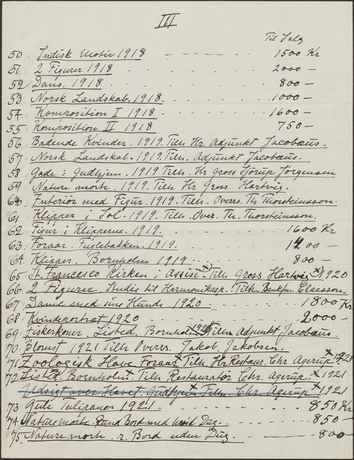 III
Til Salg
50. Indisk Motiv 1918 1500 Kr
51. 2 Figurer 1918 2000 -
52. Dans. 1918 800 -
53. Norsk Landskab. 1918 1000 -
54. Komposition I 1918 1600 -
55. Komposition II 1918 750 -
56. Badende Kvinder. 1919. Tilh. Hr. Adjunkt Jacobæus.
57. Norsk Landskab. 1919. Tilh. Adjunkt Jacobæus.
58. Gade i Gudhjem. 1919 Tilh. Hr. Gross. Jørgensen
59. Nature morte. 1919. Tilh. Hr. Gross. Hartvig.
60. Interiør med Figur 1919. Tilh. Overs. Th. Thorsteinsson.
61. Klipper i Sol. 1919. Tilh. Overs. Th. Thorsteinsson.
62. Figur i Klipperne. 1919. 1600 Kr
63. Foraar. 1919.
64. Klipper. Bornholm 1919 800 -
65. St. Francesco Kirken i Assisi. Tilh. Gross Hartvig 1920
66. 2 Figurer. Tilh.
67. Dame med sin Hund. 1920 1800 Kr
68. Kvindeportræt 1920 2000 -
69. Fiskerkoner, Listed, Bornholm 1920 Tilh. Adjunkt Jacobæus.
70. Blomst 1921 Tilh. Overs. Jakob. Jakobsen.
71. Zoologisk Have. Foraar. Tilh. Hr. Restaur. Chr. Agerup 1921
72. Bornholm. Tilh. Restauratør Chr. Agerup 1921
73. Gule Tulipaner 1921. 850 Kr
74. Nature morte. Rund Bord med hvid Dug. 850 -
75. Nature morte. r. Bord uden Dug. 800 -